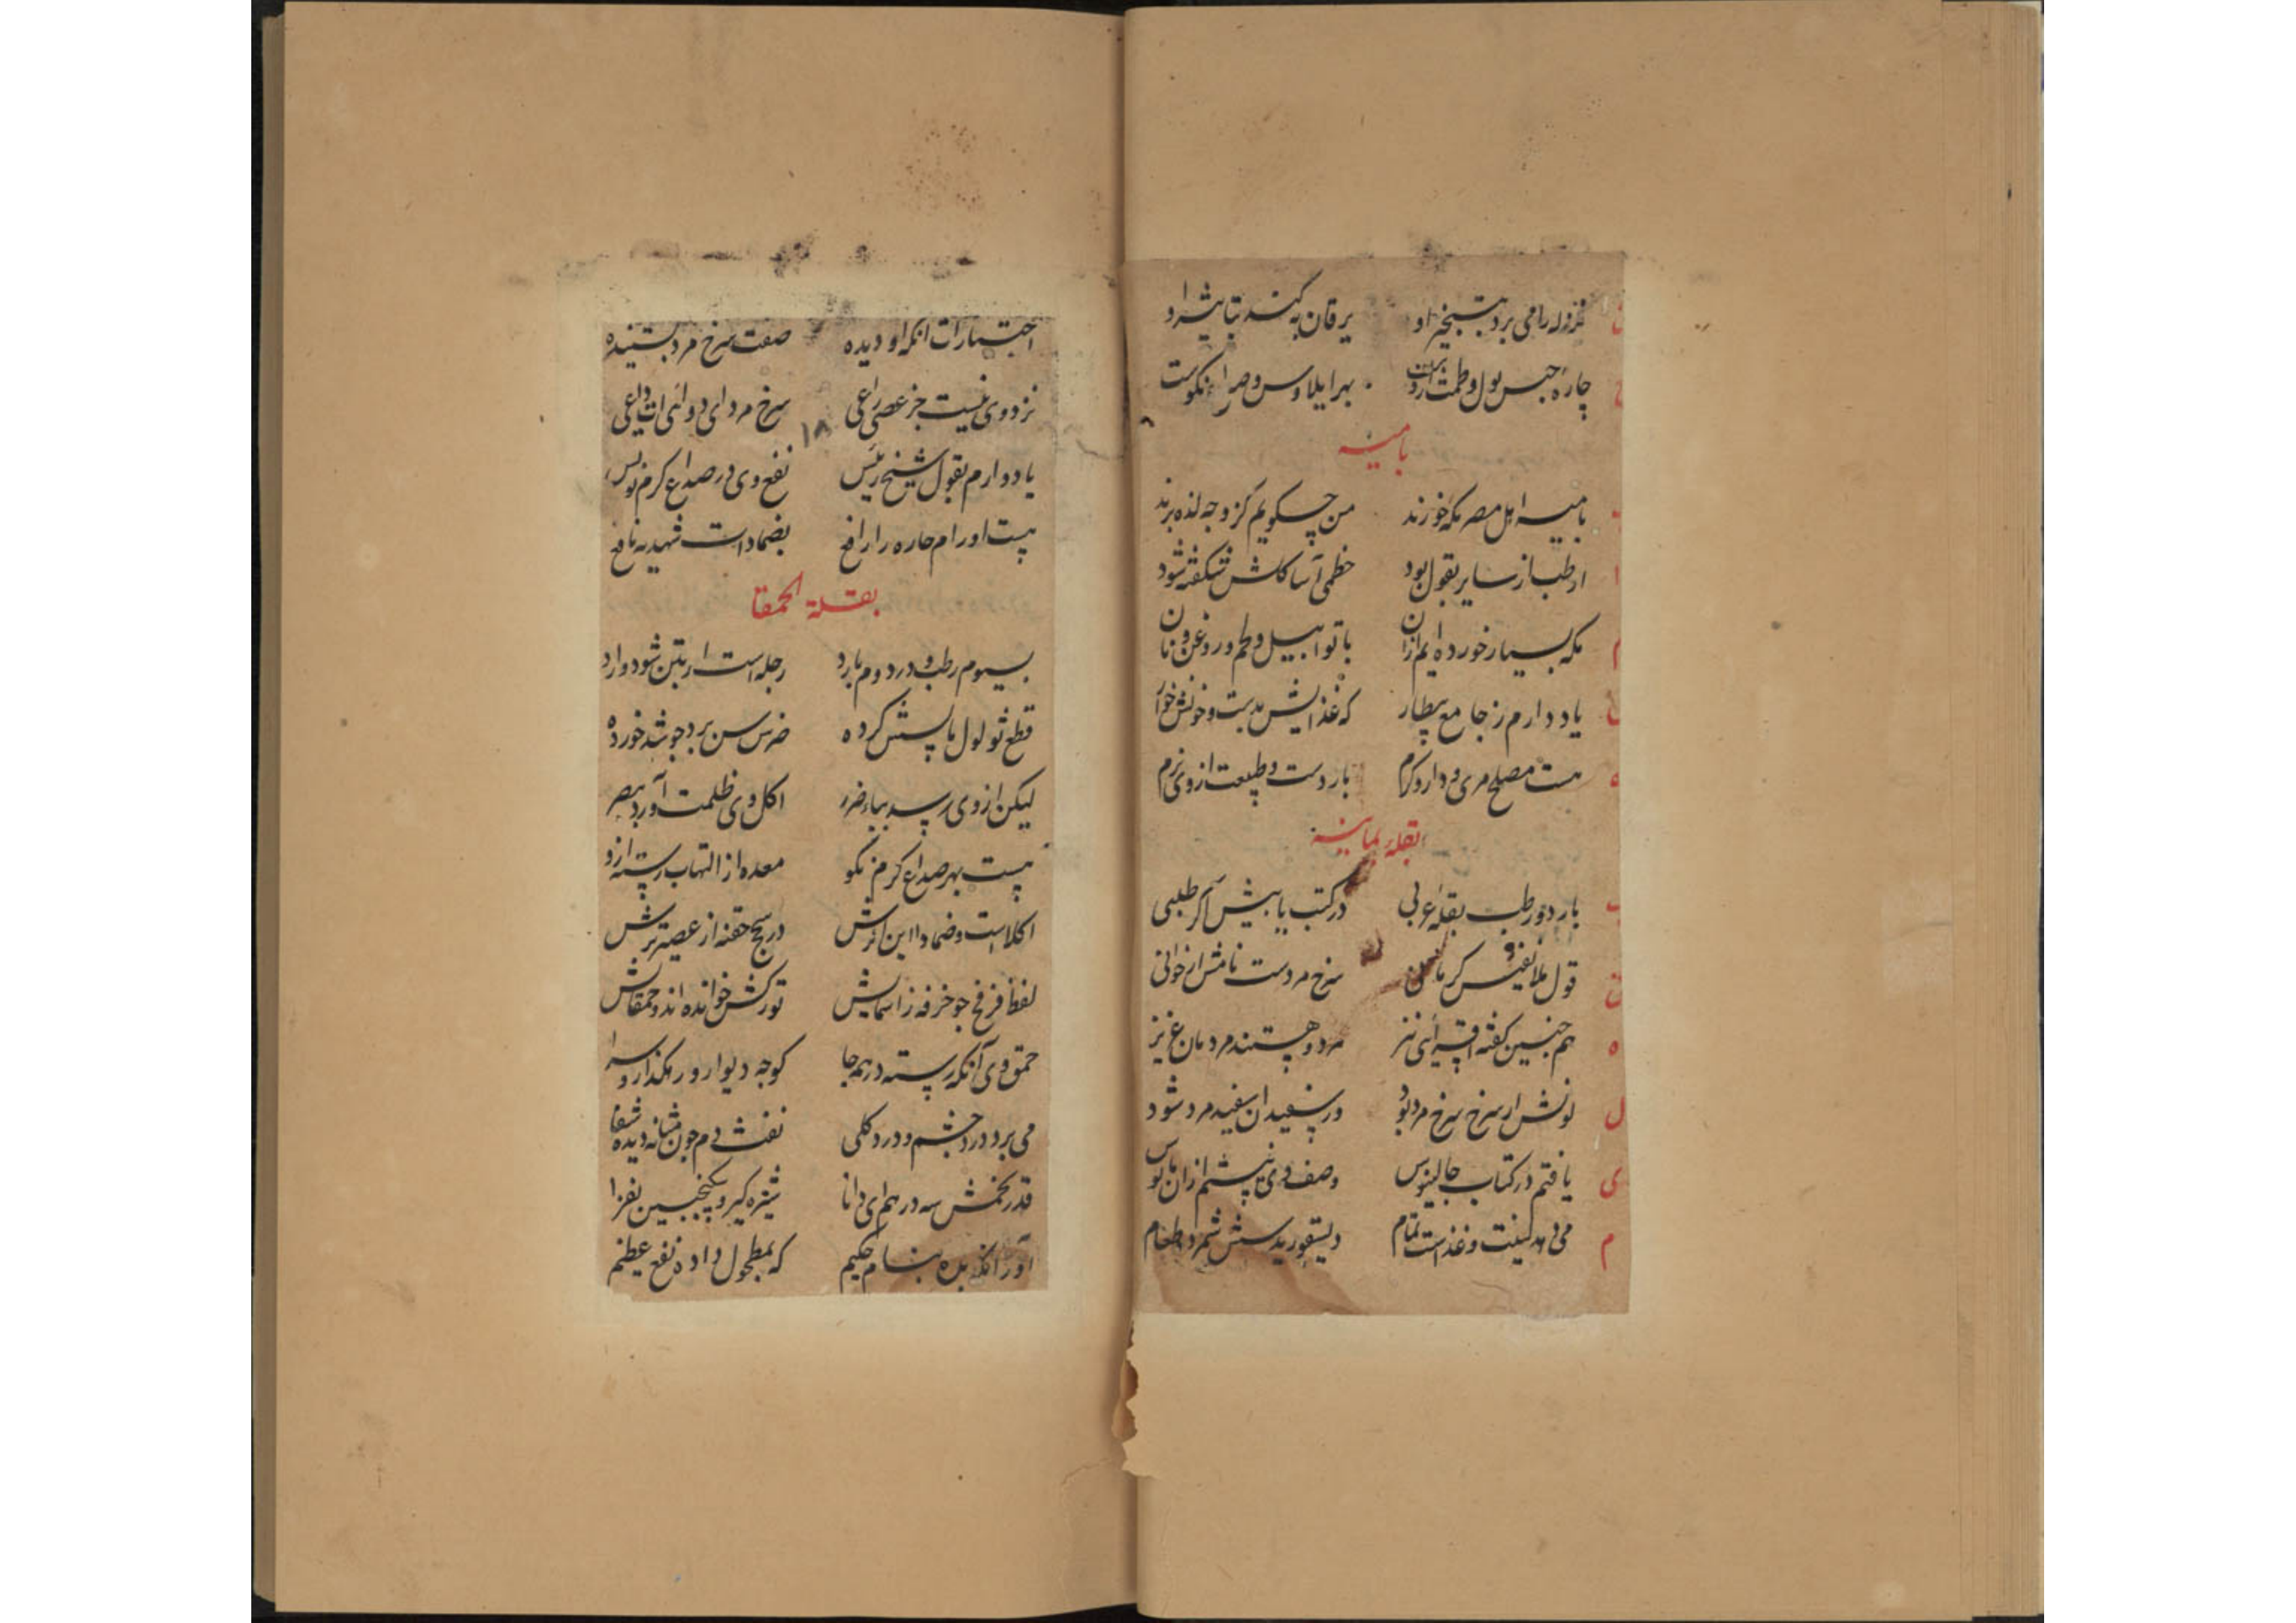 نزله را می برد بتبخیر او یرقان به کند بتاثیر او
چاره حبس بول و طمث بهر ایلاوس و صرا نکوست
بامیه
بامیه اهل مصر مکه خورند من چه کویم کز و چه لذه برند
ارطب از سایر بقول بود خطمی آسا کلش شکفته شود
مکه بسیار خورده ایم ازان با توابیل و لحم و روغن و نان
یاد دارم ز جامع بیطار که غذایش بدست و خونش خوار
هست مصلح مری و دارو کرم باردست و طبیعت از وی نرم
بقله یمانیه
بارد و رطب بقله عربی در کتب یابیش اکر طلبی
قول ملا نفیس کرمانی سرخ مردست نامش ار خوانی
هم چنین گفته اقسرائی نیز مرد و هستند مردمان عزیز
لونش ار سرخ سرخ مرد بود ور سفید آن سفید مرد شود
یافتم در کتاب جالینوس وصف وی نیستم ازان مایوس
می دهد لینت و غذاست تمام دیسقوریدسش شمرد طعام
اختیارات انکه او دیده صفت سرخ مرد بسنیده
نزد وی نیست جز عصی راعی سرخ مرد ای دوائی را داعی
۱۸
یاد دارم بقول شیخ رئیس نفع وی در صداع کرم نویس
هست اورام حاره را رافع بضماداست شهدیه نافع
بقلة الحمقا
بسیوم رطب و در دوم بارد رجله است ار بتن شود وارد
قطع ثولول مالشش کرده ضرس سن برد جو شد خورده
لیکن از وی رسد بباه ضرر اکل وی ظلمت آورد ببصر
هست بهر صداع کرم نکو معده از التهاب رسته ازو
اکلا است و ضمادا این اثرش در سحج حقنه از عصیر ترش
لفظ فرفخ جو خرفه ز اسمایش تورکش خوانده اند و حمقایش
حمق وی آنکه رسته در همه جا کوچه دیوار و رهکذار و سرا
می برد درد چشم و درد کلی نفث دم چون مثانه دیده شفا
قدر تخمش سه درهم ای دانا شیره کیر و سکنجبین بفزا
آور آنکه بده بنام حکیم که بمطحول داده نفع عظیم